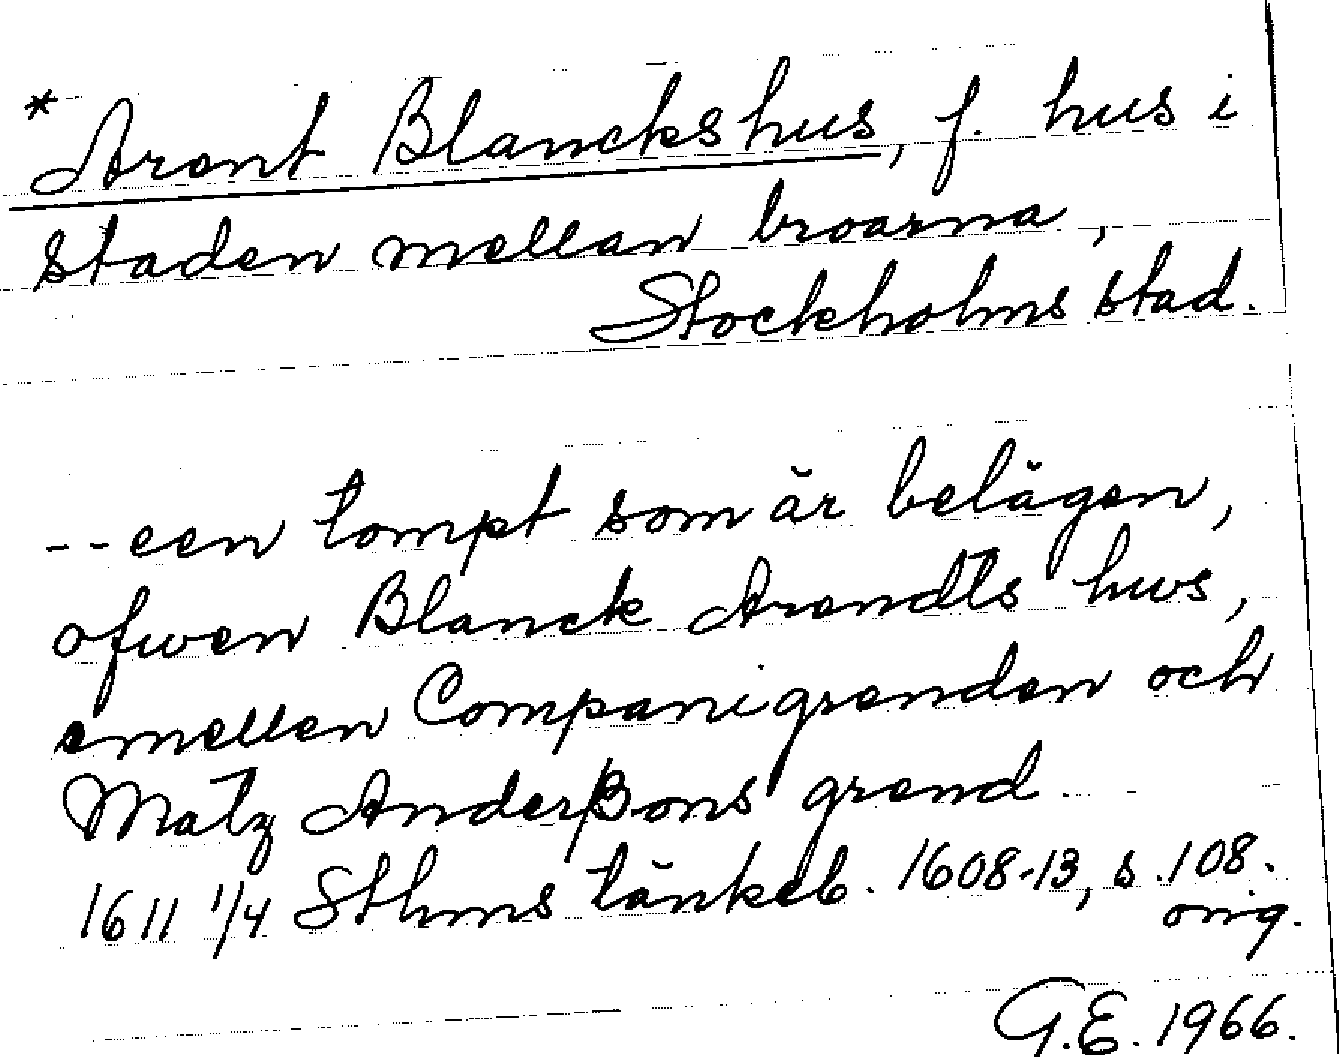 * Arent Blanckshus, f. hus i
staden mellan broarna,
Stockholms stad.
-- een tompt som är belägen,
ofwen Blanck Arendts hws,
emellen Companigrenden och
Matz Anderßons grend
1611 1/4 Sthms tänkeb. 1608-13, s. 108.
orig.
G.E. 1966.